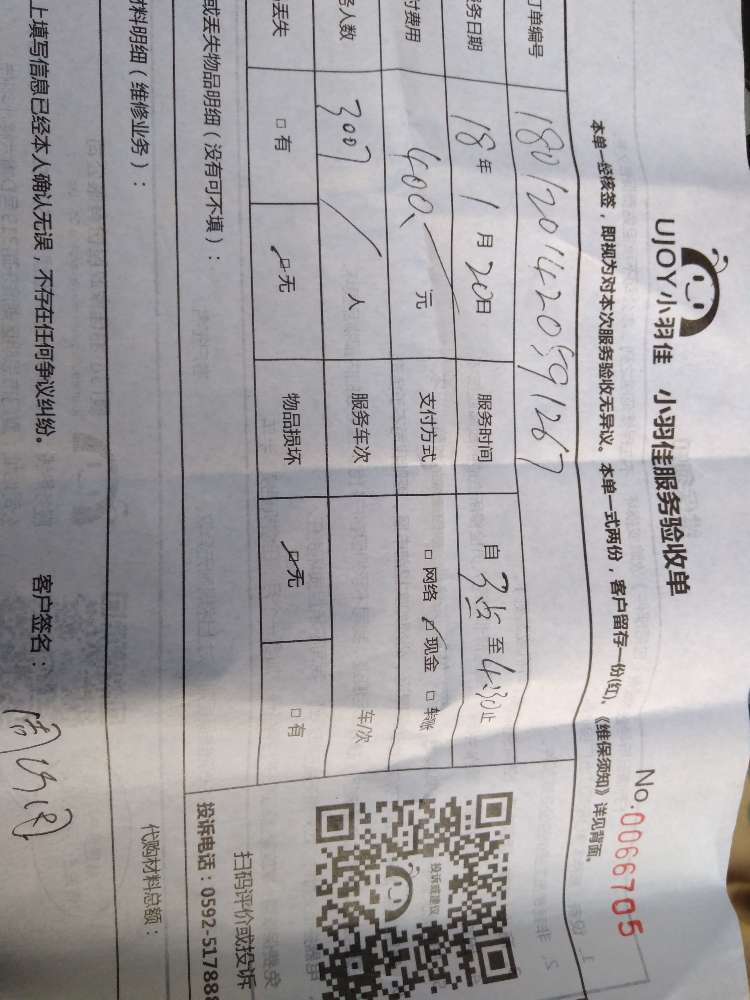 UJOY小羽佳 小羽佳服务验收单
No.0066705
本单一经核签，即视为对本次服务验收无异议。本单一式两份，客户留存一份(红)、《维保须知》详见背面。
订单编号 180120142099126
服务日期 18年1月20日 服务时间 自3点至4:30止
付费用 400.一元 支付方式 □网络 ☑现金 □转账
务人数 3007 / 人 服务车次 车/次
丢失 □有 ☑无 物品损坏 ☑无 □有
或丢失物品明细（没有可不填）：
投诉或建议
扫码评价或投诉
投诉电话：0592-51788
材料明细（维修业务）：
代购材料总额：
上填写信息已经本人确认无误，不存在任何争议纠纷。 客户签名：